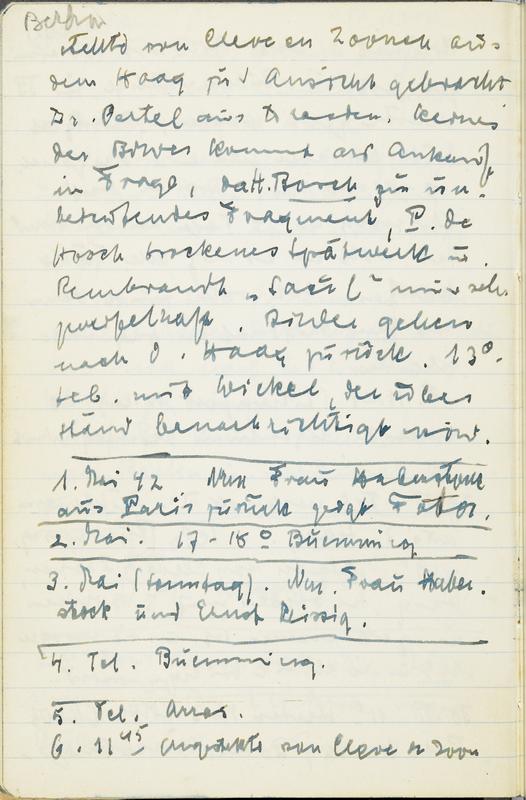 Berlin
stellte von Cleve en Zoonen aus
dem Haag zur Ansicht gebracht
Dr. Oertel aus Dresden. Keines
der Bilder kommt als Ankauf
in Frage, da H. Bosch zu un-
bedeutendes Fragment, P. de
Hooch trockenes Spätwerk u.
Rembrandt „Saul“ mir sehr
zweifelhaft. Bilder gehen
nach d. Haag zurück. 13°
tel. mit Wickel, der über
Stand benachrichtigt wird.
1. Mai 42 Nm Frau Haberstock
aus Paris zurück zeigt Fotos.
2. Mai. 17-18° Buemming
3. Mai (Sonntag). Nm. Frau Haber-
stock und Ernst
4. Tel. Buemming.
5. Tel. Arras.
6. 11 45 Angestellte von Cleve en Zoon